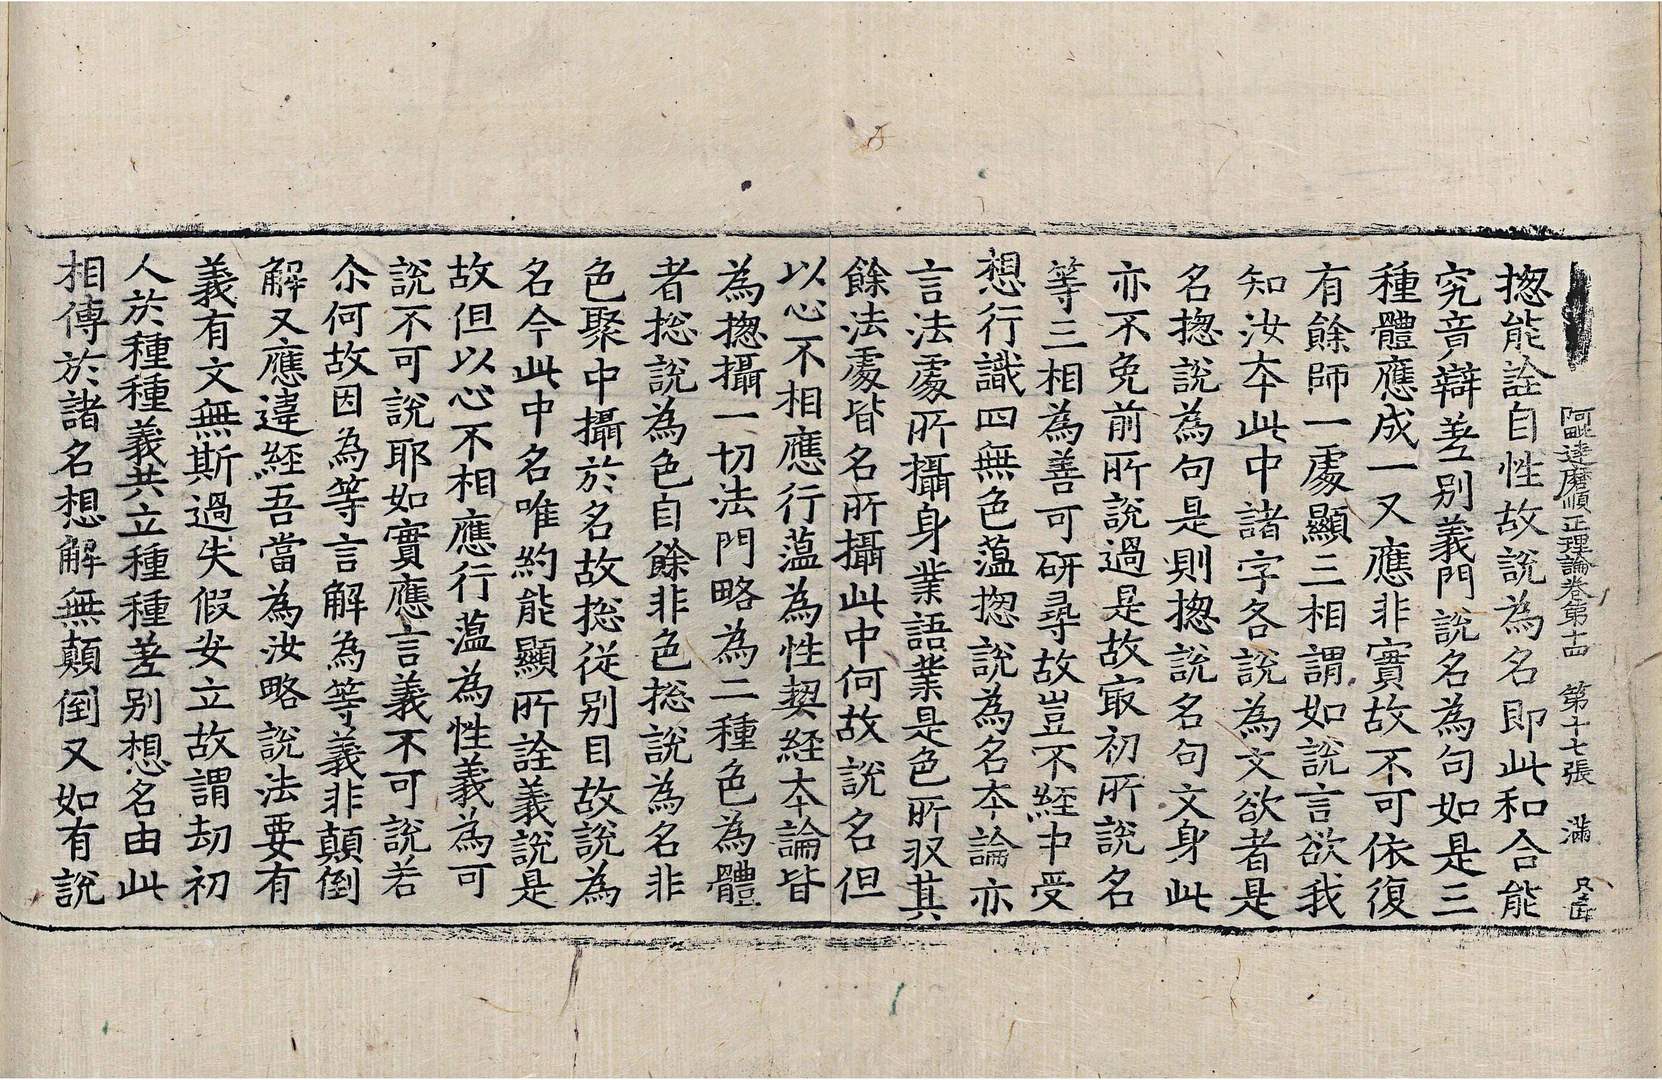 阿毗達磨順正理論卷第十四　第十七張　滿
揔能詮自性故說為名即此和合能
究竟辯差別義門說名為句如是三
種體應成一又應非實故不可依復
有餘師一處顯三相謂如說言欲我
知汝夲此中諸字各說為文欲者是
名揔說為句是則揔說名句文身此
亦不免前所說過是故㝡初所說名
等三相為善可研尋故豈不經中受
想行識四無色蘊揔說為名夲論亦
言法處所攝身業語業是色所収其
餘法處皆名所攝此中何故說名但
以心不相應行蘊為性契經夲論皆
為揔攝一切法門略為二種色為體
者捴說為色自餘非色捴說為名非
色聚中攝於名故捴從別目故說為
名今此中名唯約能顯所詮義說是
故但以心不相應行蘊為性義為可
說不可說耶如實應言義不可說若
尒何故因為等言解為等義非顛倒
解又應違經吾當為汝略說法要有
義有文無斯過失假安立故謂劫初
人於種種義共立種種差別想名由此
相傳於諸名想解無顛倒又如有說